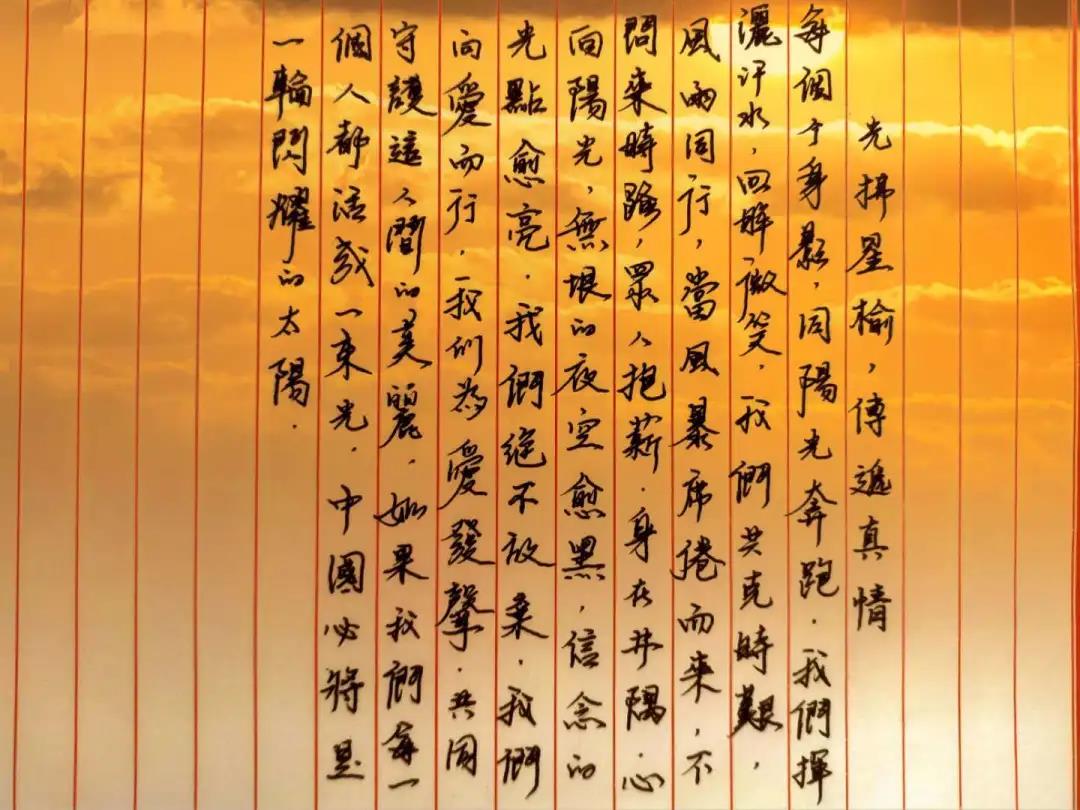 光拂星榆,傳遞真情
每調个身影,同陽光奔跑.我們揮
灑汗水,回眸微笑.我們共克時艱,
風雨同行,當風暴席倦而來,不
問來時路,眾人抱薪.身在井隅.心
向陽光,無垠的夜空愈黑,信念的
光點愈亮.我們絕不放棄.我們
向愛而行.我们為愛發聲.共同
守護這人間的美麗.如果我們每一
個人都活成一束光.中國必將是
一輪閃耀的太陽.